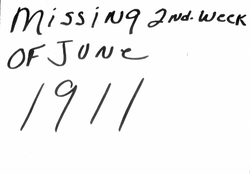 Missing 2nd. Week
OF JUNE
1911